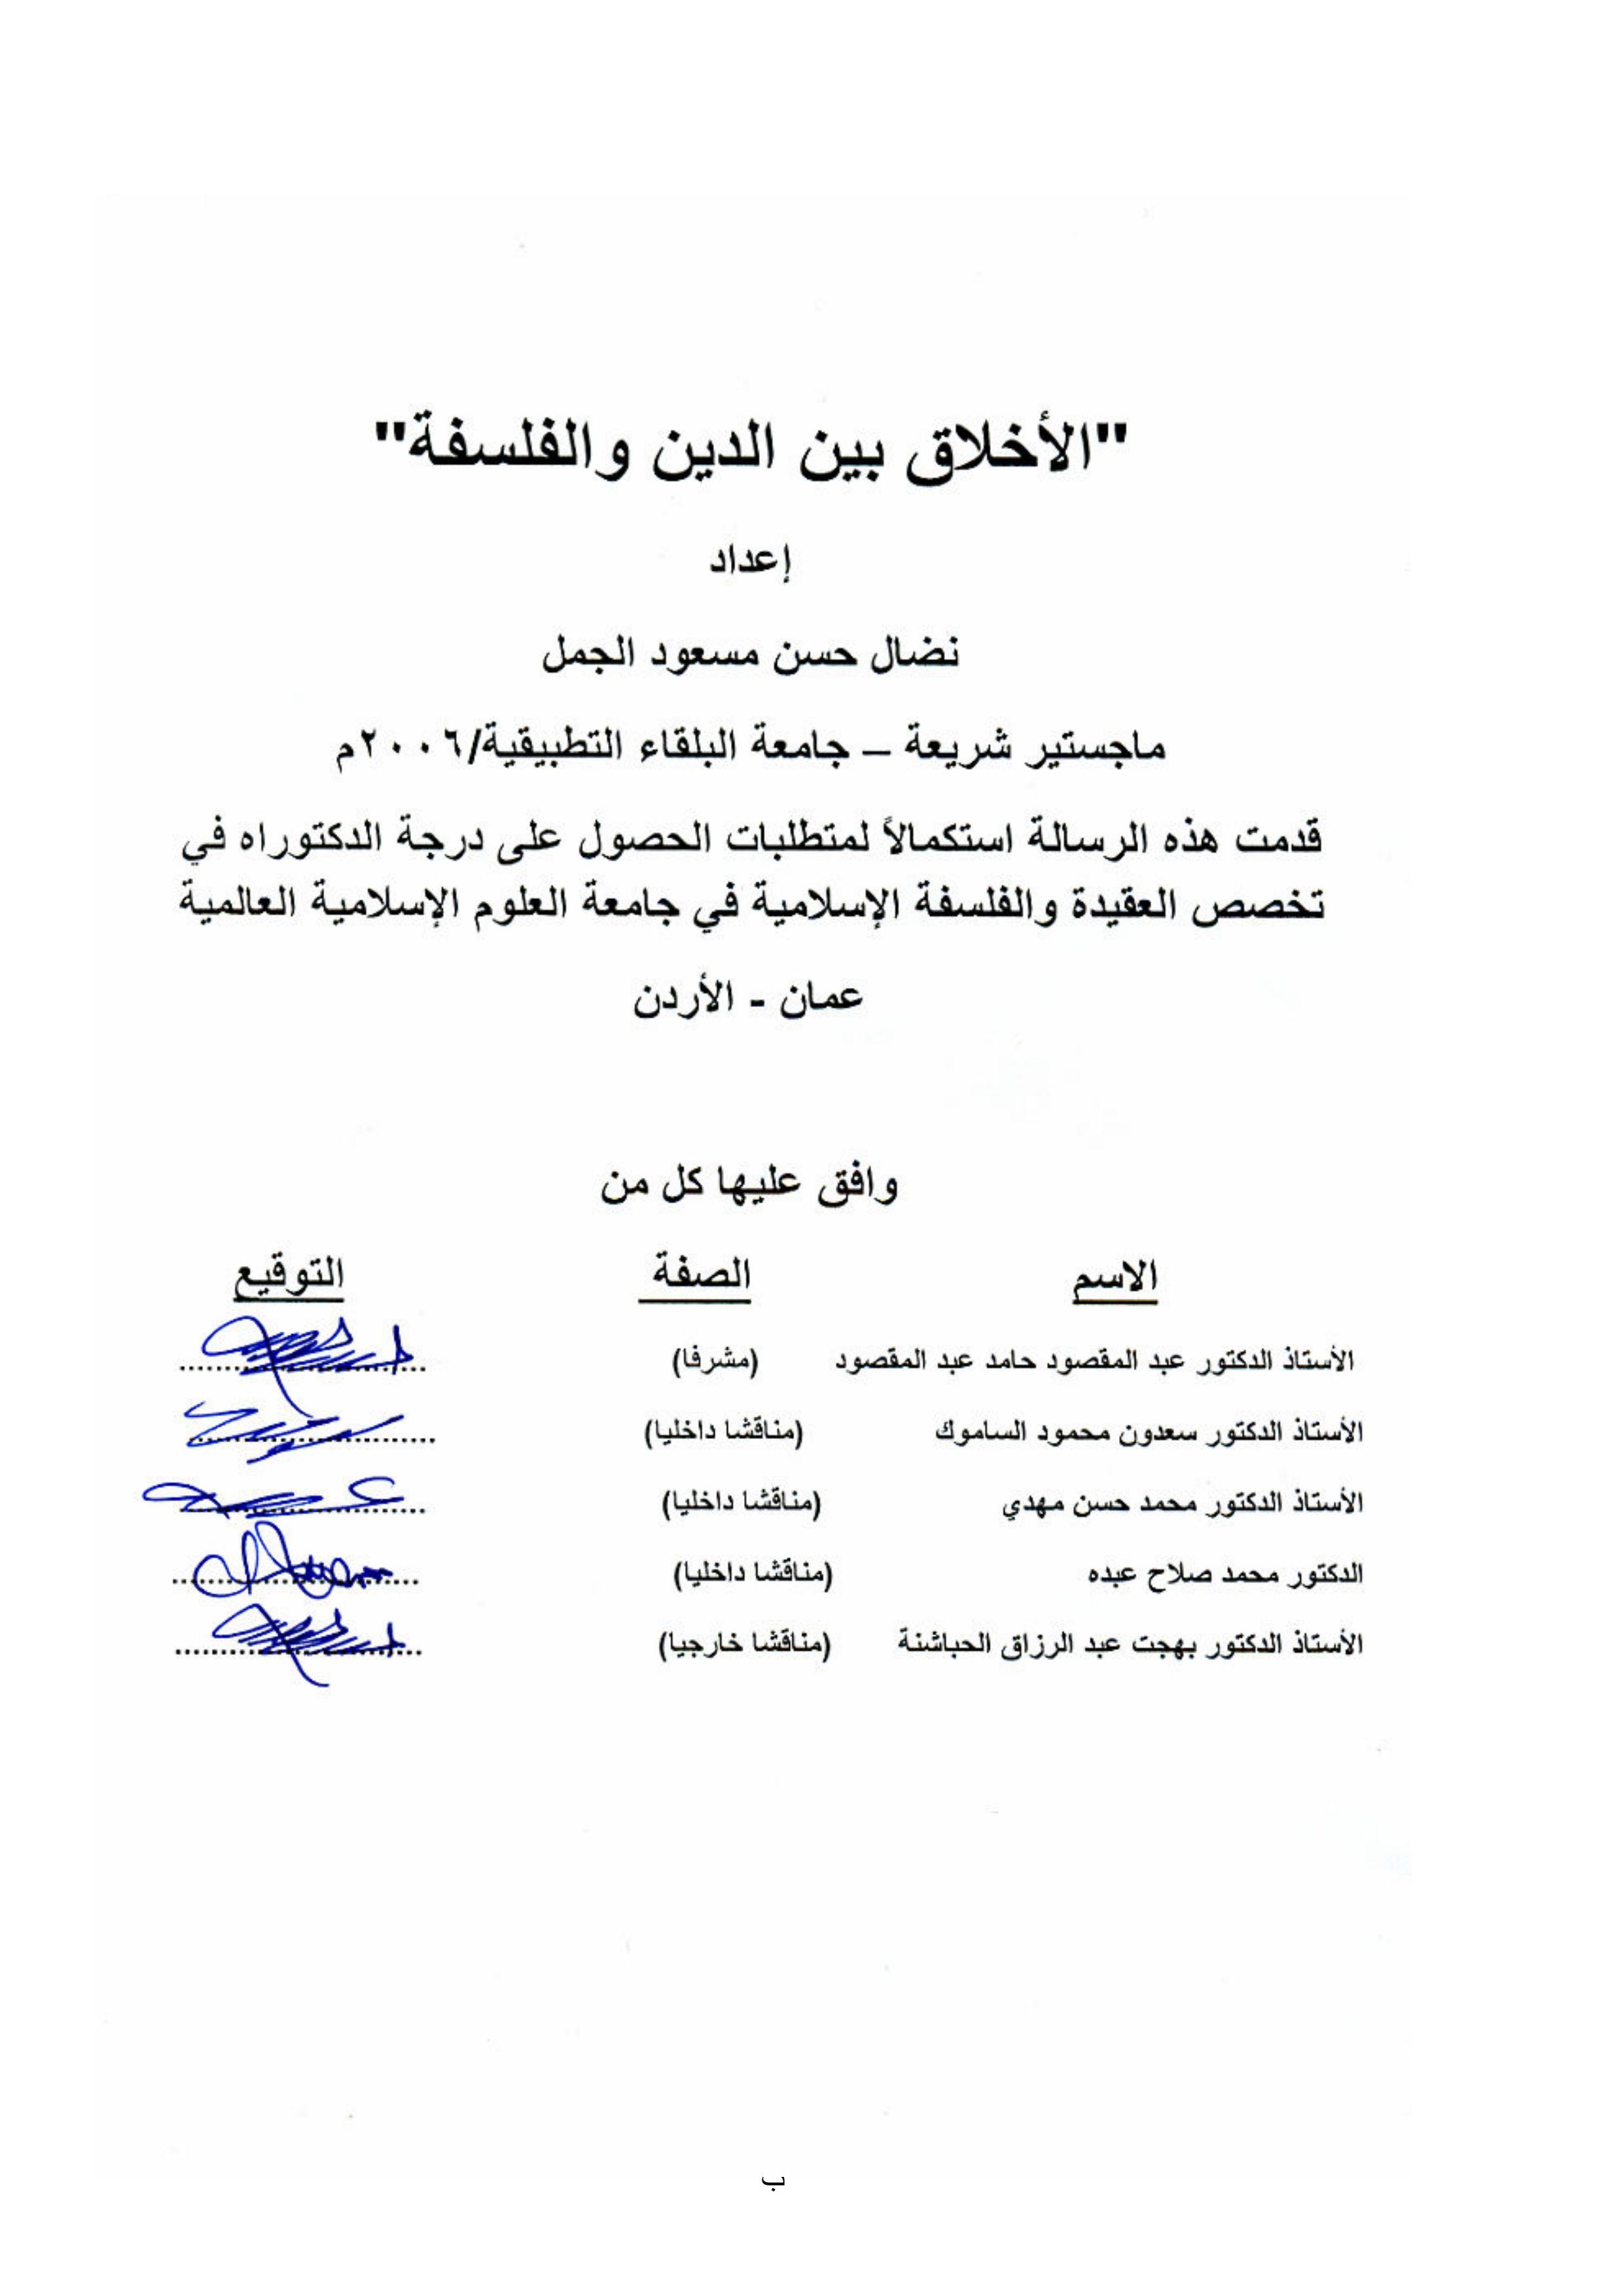 "الأخلاق بين الدين والفلسفة"
إعداد
نضال حسن مسعود الجمل
ماجستير شريعة – جامعة البلقاء التطبيقية/٢٠٠٦م
قدمت هذه الرسالة استكمالاً لمتطلبات الحصول على درجة الدكتوراه في
تخصص العقيدة والفلسفة الإسلامية في جامعة العلوم الإسلامية العالمية
عمان - الأردن
وافق عليها كل من
الاسم الصفة التوقيع
الأستاذ الدكتور عبد المقصود حامد عبد المقصود (مشرفا) ......................
الأستاذ الدكتور سعدون محمود الساموك (مناقشا داخليا) ......................
الأستاذ الدكتور محمد حسن مهدي (مناقشا داخليا) ......................
الدكتور محمد صلاح عبده (مناقشا داخليا) ......................
الأستاذ الدكتور بهجت عبد الرزاق الحباشنة (مناقشا خارجيا) ......................
ب